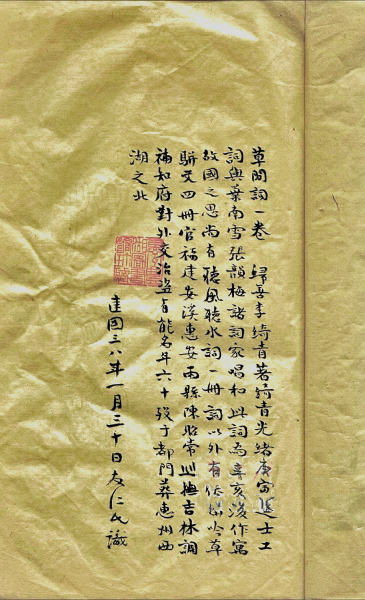 草間詞一卷 歸善李綺青著綺青光緒庚寅進士工
詞與葉南雪張韻梅諸詞家唱和此詞為辛亥後作寓
故國之思尚有聽風聽水詞一冊詞以外有 吟草
駢文四冊官福建安溪惠安兩縣陳昭常巡撫吉林調
補知府對外交治盜有能名年六十歿于都門葬惠州西
湖之北
建國三八年一月三十日友仁氏識